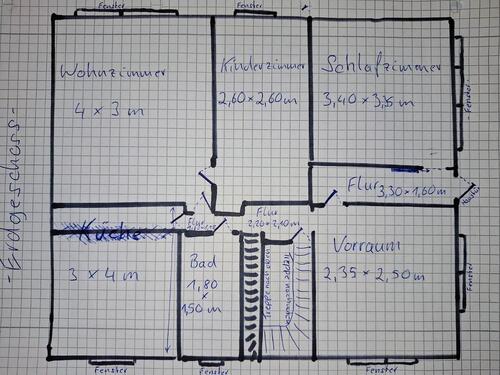 Fenster
Fenster
- Erdgeschoss -
Wohnzimmer
4 x 3 m
Kinderzimmer
2,60 x 2,60 m
Schlafzimmer
3,40 x 3,35 m
Fenster
Flur 3,30 x 1,60 m
Haustür
Flur
Flur
2,20 x 2,10 m
Küche
3 x 4 m
Bad
1,80
x
1,50 m
Treppe nach oben
Vorraum
2,35 x 2,50 m
Fenster
Fenster
Fenster
Fenster